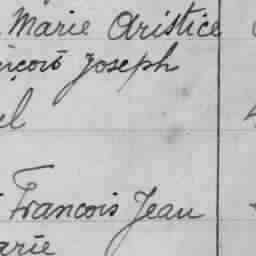 Marie Aristice
nçois Joseph
el
François Jean
arie